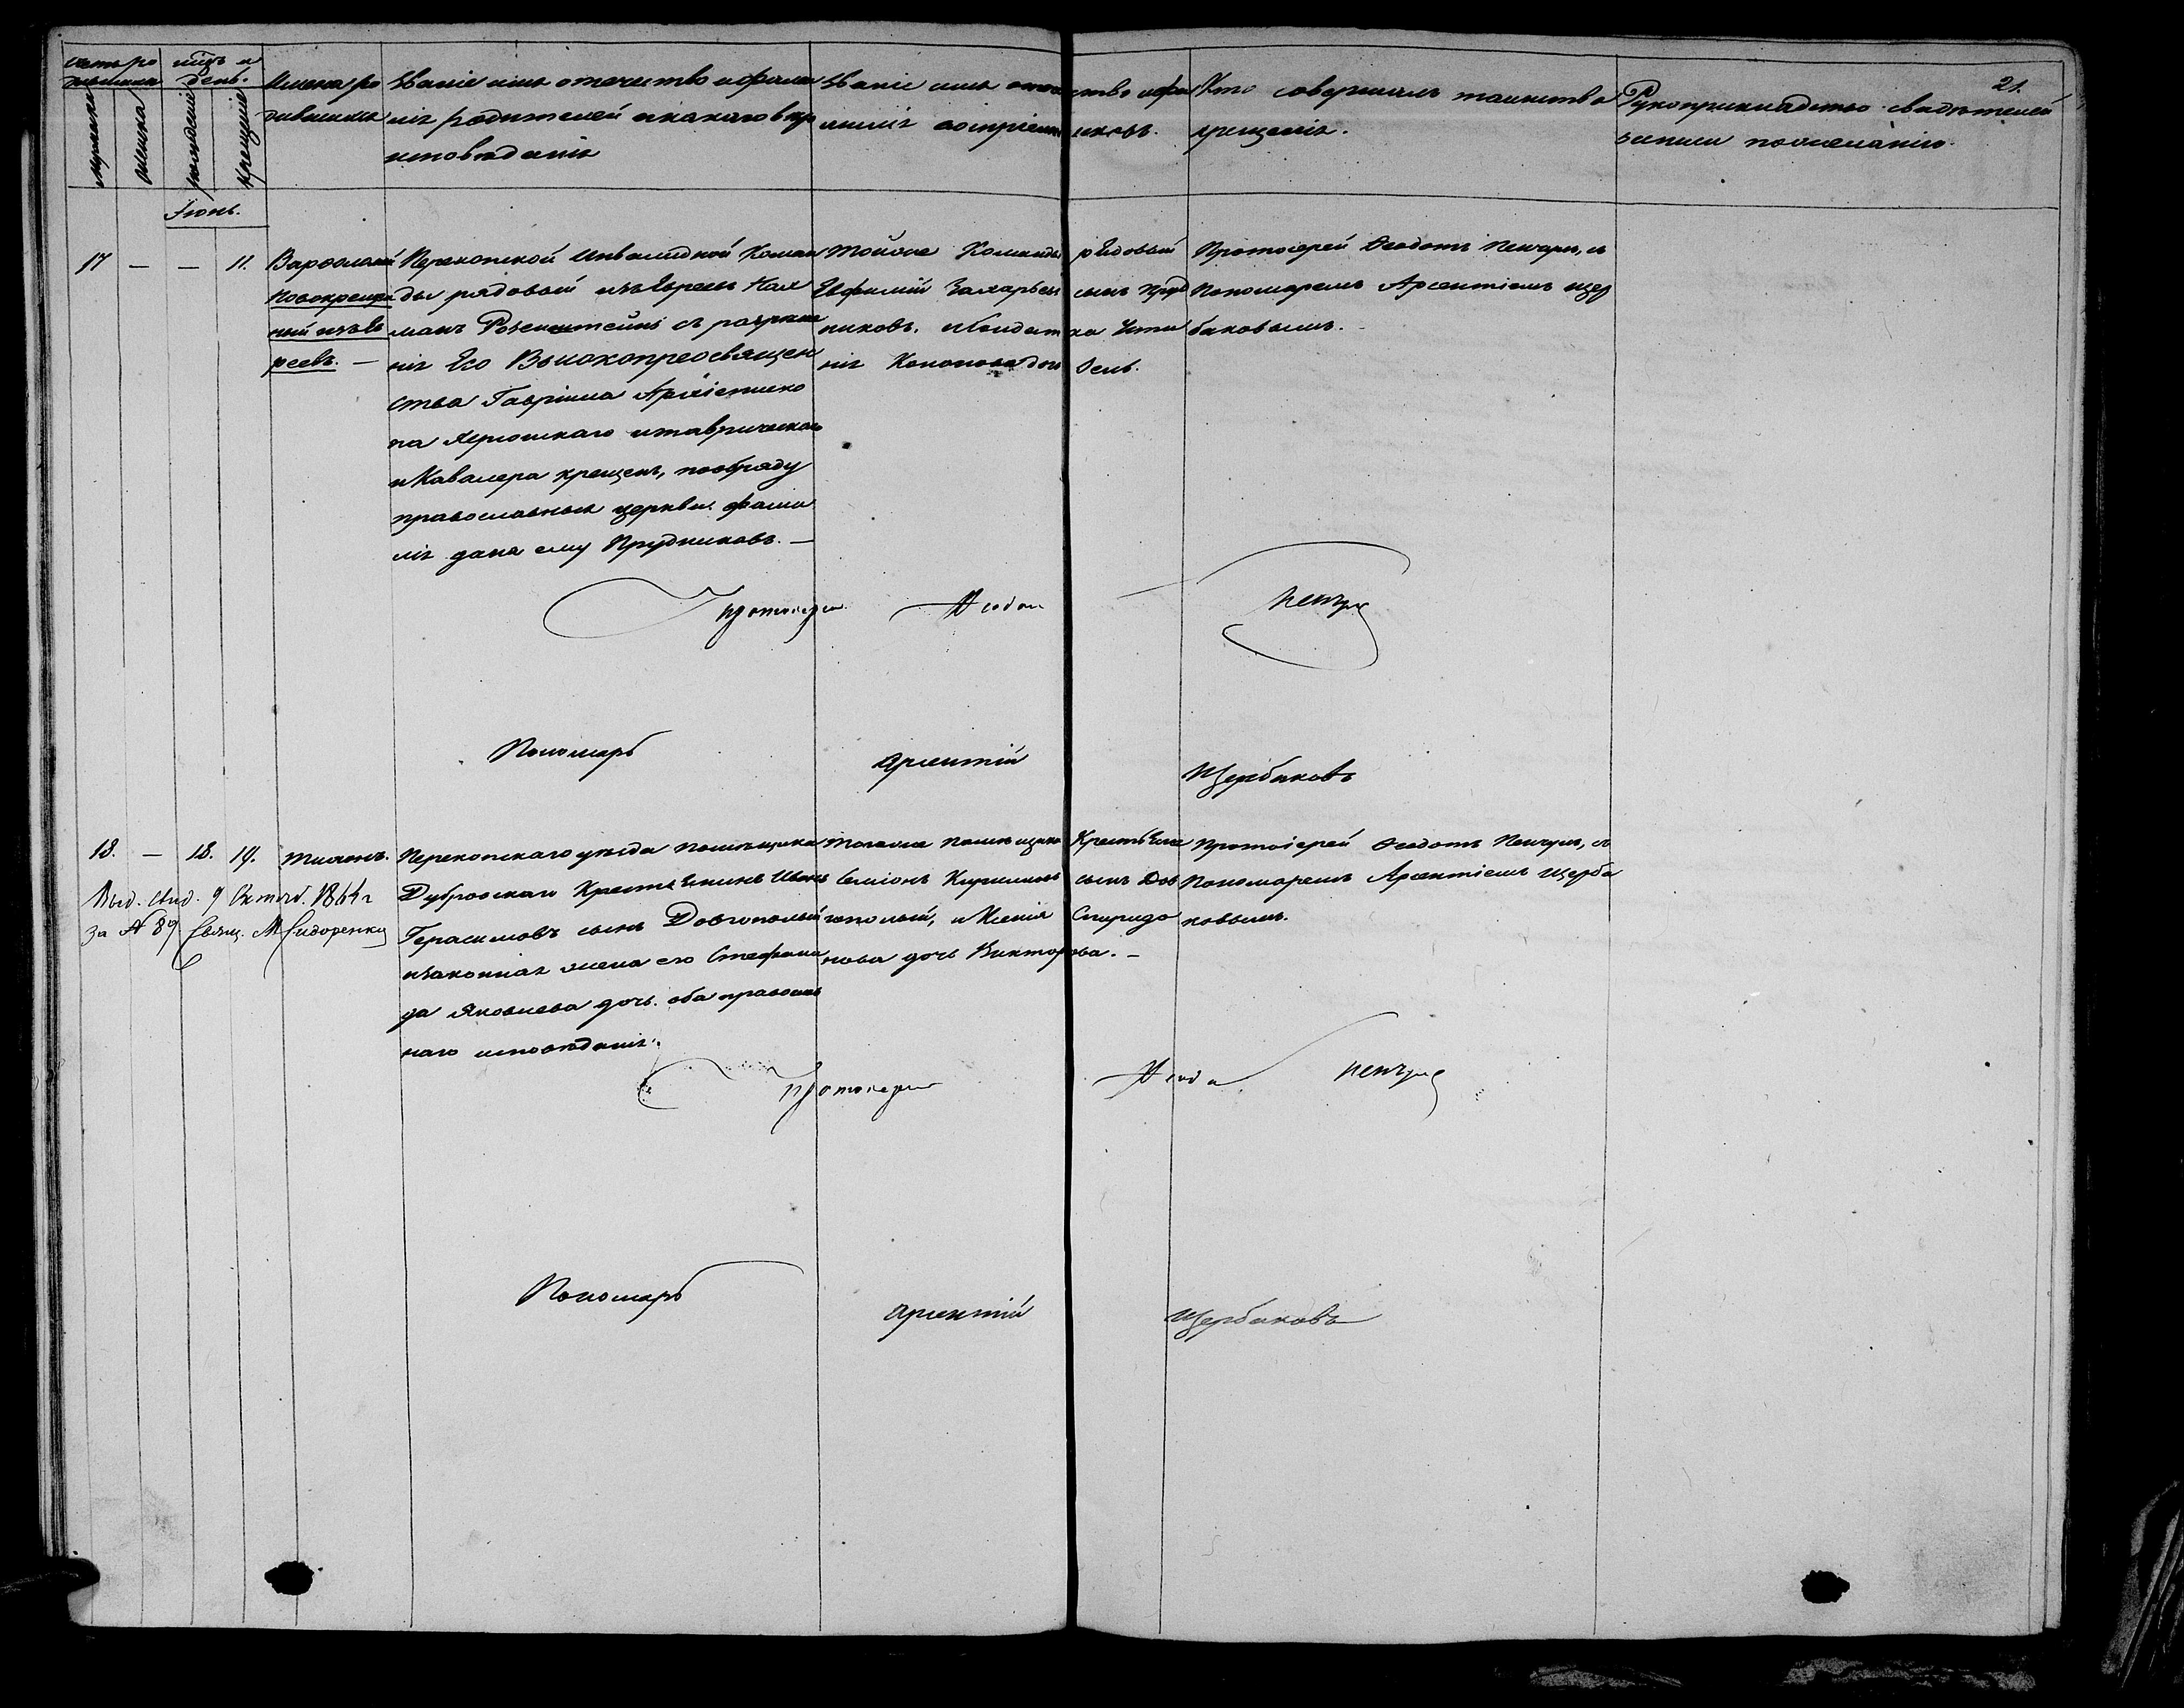 21.
Счетъ ро
дившихся
мѣцъ и
день.
мужеска
женска
рожденіе
крещеніе
Имена ро
дившихся
Званіе имя отечество и фами
лія родителей и какого вѣро
исповѣданія
Званіе имя отечество и фа
милія воспріемниковъ.
Кто совершалъ таинство
крещенія.
Рукоприкладство свидѣтелей
записи по желанію.
Іюнь.
17 — — 11.
Варѳоломей
новокрещен
ный изъ ев
реевъ. —
Перекопской Инвалидной Коман
ды рядовый изъ Евреевъ Кал
манъ Розенштейнъ съ разрѣше
нія Его Высокопреосвящен
ства Гавріила Архіеписко
па Херсонскаго и таврическаго
и Кавалера крещенъ, по обряду
православныя церкви. фами
лія дана ему Прудниковъ. —
Той же Команды рядовый
Евфимій Захарьевъ сынъ Пруд
никовъ. и Солдатка
нія Кононова дочь
Протоіерей Ѳеодотъ Пенчулъ, съ
Пономаремъ Арсентіемъ Щер
баковымъ.
Протоіерей Ѳеодотъ Пенчулъ
Пономарь Арсентій Щербаковъ
18. — 18. 19. Тимонъ.
Выд. свид. 9 Октяб. 1864 г
за № 89. Свящ. М Сидоренко
Перекопскаго уѣзда помѣщика
Дубровскаго Крестьянинъ Иванъ
Герасимовъ сынъ Довгополый
и законная жена его Стефани
да Яковлева дочь. оба православ
наго исповѣданія.
Того же помѣщика Крестьяне
Семіонъ Кириловъ сынъ Дов
гополый, и Ксенія Спиридо
нова дочь Викторова. —
Протоіерей Ѳеодотъ Пенчулъ, съ
Пономаремъ Арсентіемъ Щерба
ковымъ.
Протоіерей Ѳеодотъ Пенчулъ
Пономарь Арсентій Щербаковъ